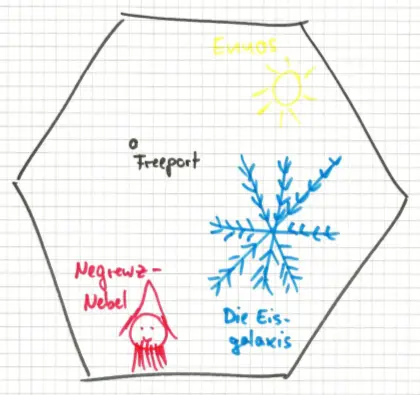 Ennos
Freeport
Negrewz-
Nebel
Die Eis-
galaxis